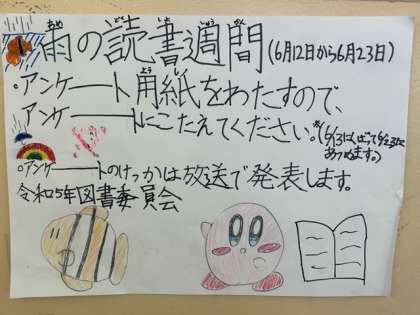 雨の読書週間(6月12日から6月23日)
あめ どくしょしゅうかん
・アンケート用紙をわたすので、
ようし
アンケートにこたえてください。
あつめます。)
。アンケートのけっかは放送で発表します。
令和5年図書委員会